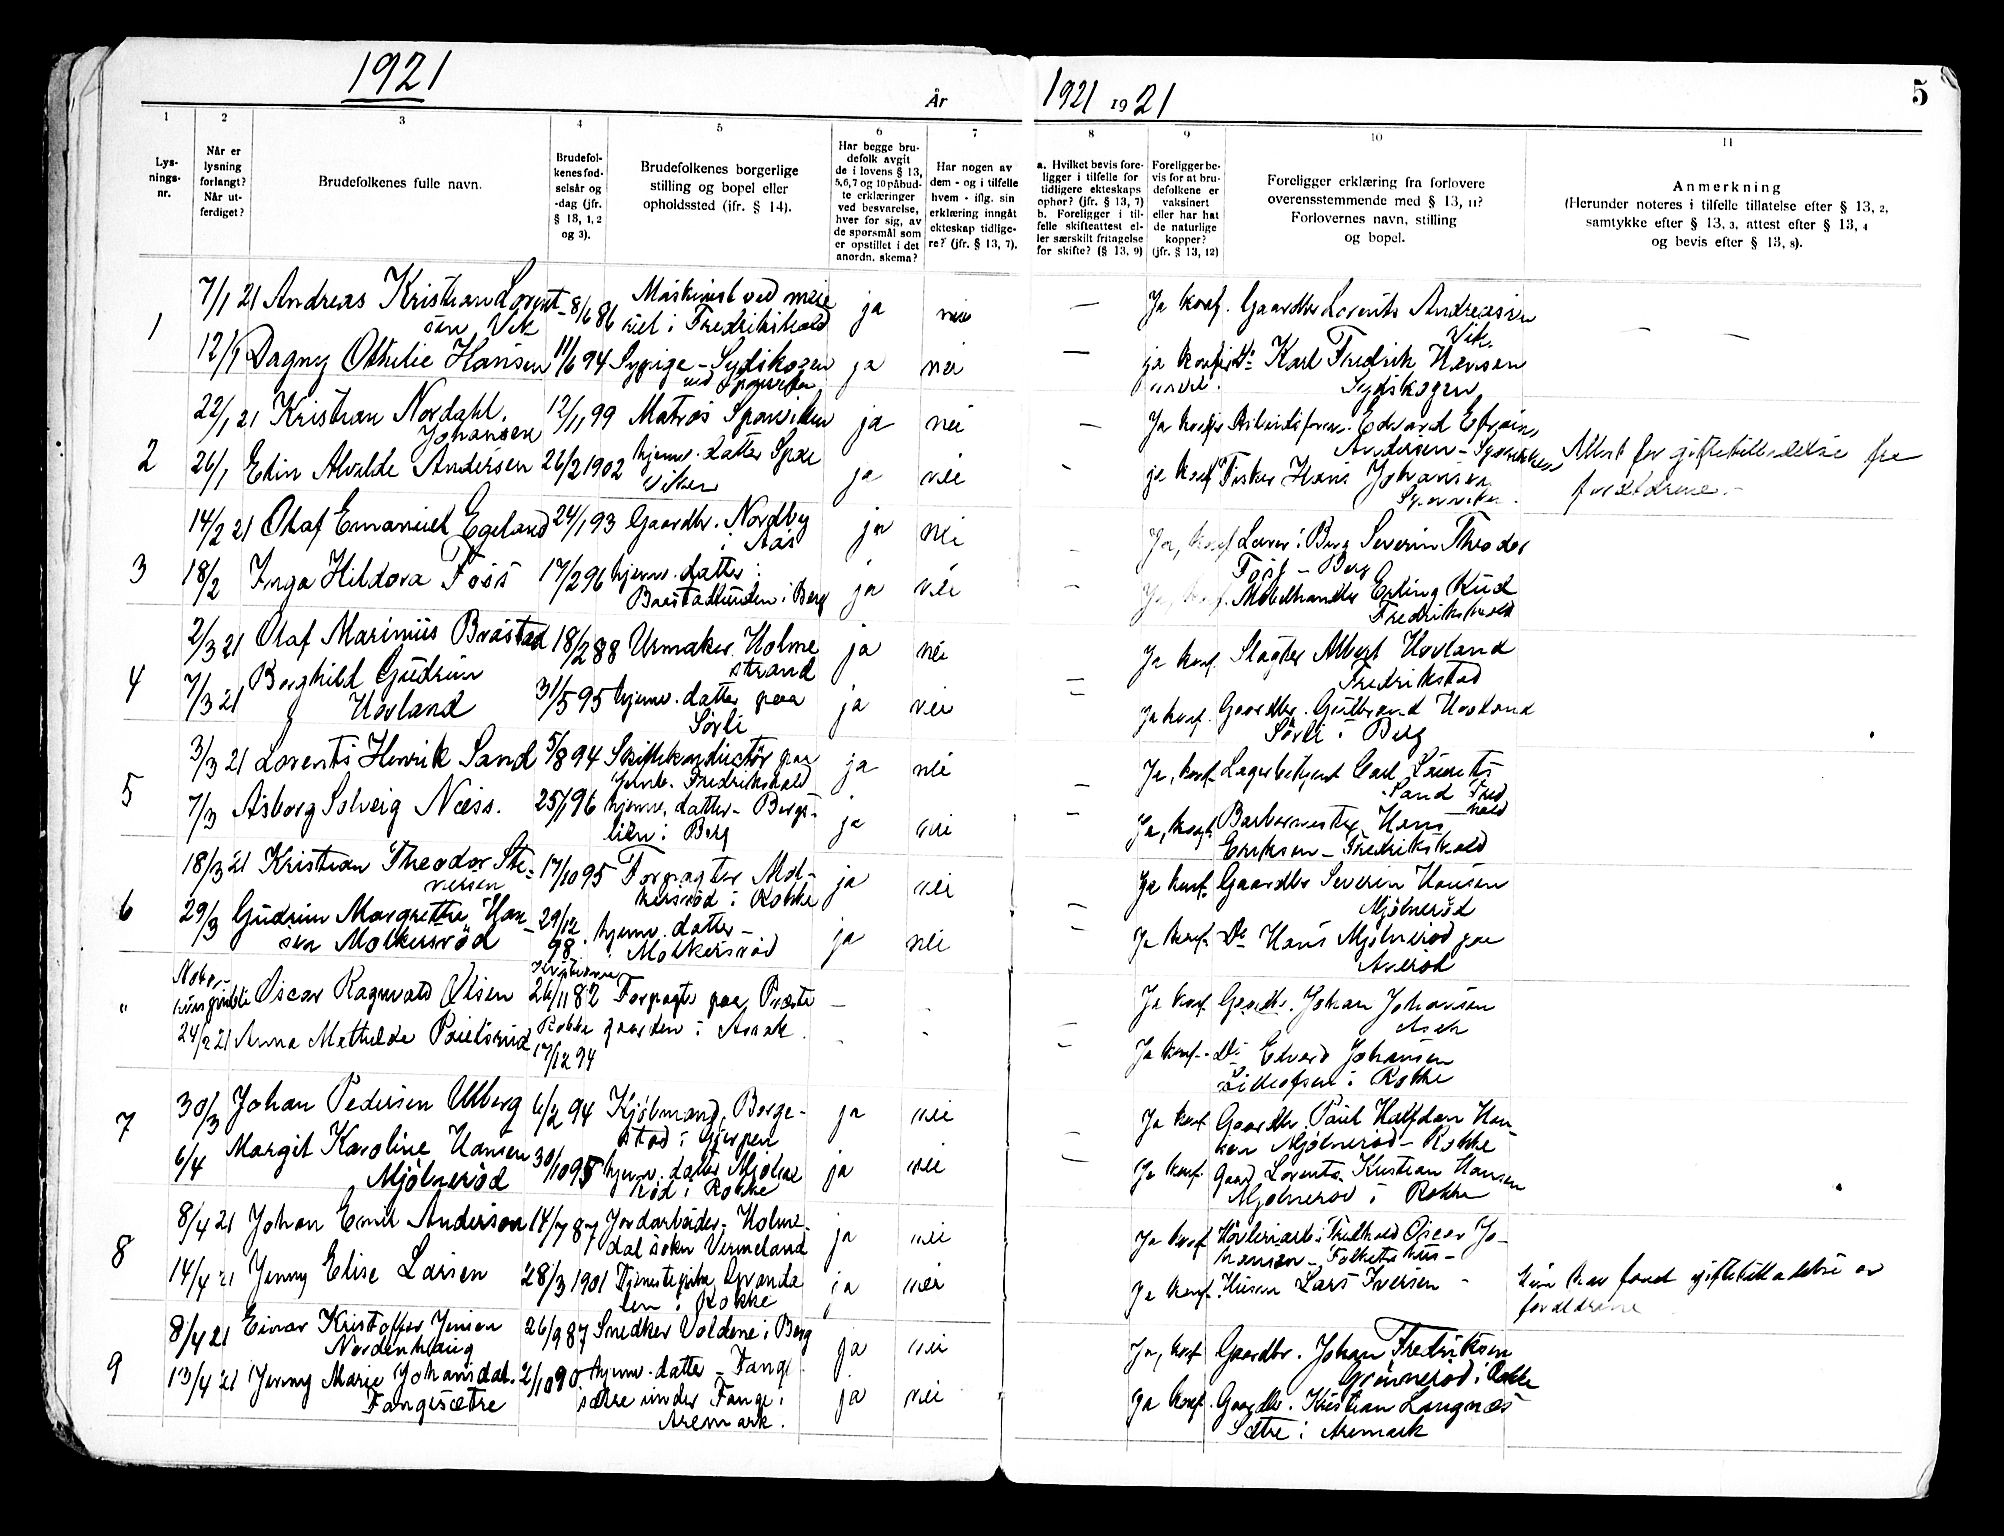 1921
År
1921 19 21
5
1 2 3 4 5 6 7 8 9 10 11
Lys-
nings-
nr.
Når er
lysning
forlangt?
Når ut-
ferdiget?
Brudefolkenes fulle navn.
Brudefol-
kenes fød-
selsår og
-dag (jfr.
§ 13, 1, 2
og 3).
Brudefolkenes borgerlige
stilling og bopel eller
opholdssted (ifr. § 14).
Har begge bru-
defolk avgit
de i lovens § 13,
5,6,7 og 10 påbud-
te erklæringer
ved besvarelse,
hver for sig, av
de spørsmål som
er opstillet i det
anordn. skema?
Har nogen av
dem - og i tilfelle
hvem - iflg. sin
erklæring inngåt
ekteskap tidlige-
re? (jfr. § 13, 7).
a. Hvilket bevis fore-
ligger i tilfelle for
tidligere ekteskaps
ophør? (jfr. § 13, 7)
b. Foreligger i til-
felle skifteattest el-
ler særskilt fritagelse
for skifte? (§ 13, 9)
Foreligger be-
vis for at bru-
defolkene er
vaksinert
eller har hat
de naturlige
kopper?
(jfr. § 13, 12)
Foreligger erklæring fra forlovere
overensstemmende med § 13, 11?
Forlovernes navn, stilling
og bopel.
Anmerkning
(Herunder noteres i tilfelle tillatelse efter § 13, 2,
samtykke efter § 13, 3, attest efter § 13, 4
og bevis efter § 13, 8).
1
7/1 21 Andreas Kristian Lorent- 8/6 86 Maskinist ved meie ja nei — Ja konf. Gaardbr Lorents Andreassen
sen Vik riet i Fredrikshald Vik.
12/1 Dagny Othilie Hansen 11/6 94 Sypige - Sydskogen ja nei — ja konf Do Karl Fredrik Hansen
ved Sponviken Sydskogen
2
22/1 21 Kristian Nordahl. 12/1 99 Matros Sponviken ja nei - Ja konf Arbeidsform. Edvard Efraim
Johansen Andersen - Sponviken
26/1 Elin Alvilde Andersen 26/2 1902 hjemv. datter Spon ja nei - ja konf Fisker Hans Johansen Attest for giftetilladelse fra
viken Sponviken. forældrene.-
3
14/2 21 Olaf Emanuel Egeland 24/1 93 Gaardbr. Nordby ja nei - Ja, konf Lærer i Berg Severin Theodor
i Aas Foss - Berg
18/2 Inga Hildora Foss 17/2 96 hjemv. datter ja nei - Ja, konf. Møbelhandler Erling Rud
Baastadlunden i Berg Fredrikshald
4
2/3 21 Olaf Marinius Bråstad 18/2 88 Urmaker Holme ja nei - Ja konf. Slagter Albert Hovland
strand Fredrikstad
7/3 21 Borghild Gudrun 31/5 95 hjemv. datter paa ja nei - Ja konf. Gaardbr. Gulbrand Hovland
Hovland Sörli Sörli i Berg
5
3/3 21 Lorents Henrik Sand 5/8 94 Skiftekonduktör paa ja nei - Ja, konf. Lagerbetjent Carl Laurits
Jernb. Fredrikshald Sand Fred
7/3 Asborg Solveig Næss. 25/1 96 hjemv. datter - Bergs- ja nei - Ja, konf. Barbermester Hans hald
lien i Berg Eriksen - Fredrikshald
6
18/3 21 Kristian Theodor Ste- 17/10 95 Forpagter Mol- ja nei - Ja konf. Gaardbr Severin Hansen
nersen kersröd i Rokke Mjölneröd
29/3 Gudrun Margrethe Han- 29/12 98. hjemv. datter - ja nei - Ja konf. Do Hans Mjölneröd paa
sen Molkersröd i Molkersröd
"
Oscar Ragnvald Olsen 26/11 82 Forpagter paa Præste — Ja konf. Gaardbr. Johan Johansen
24/2 21 Anna Mathilde Rokke gaarden i Asak. - - - Asak
17/12 94 Ja konf. Do Edvard Johansen
i Rokke
7
30/3 Johan Pedersen Ulberg 6/2 94 Kjöbmand, Borge- ja nei - Ja konf Gaardbr. Paul Halfdan Han-
stad i Gjerpen sen Mjölneröd - Rokke
6/4 Margit Karoline Hansen 30/10 95 hjemv. datter Mjölne ja nei - Ja konf Gaard. Lorents Kristian Hansen
Mjölneröd röd i Rokke Mjölneröd i Rokke
8
8/4 21 Johan Emil Anderson 14/7 87 Jordarbeider - Holme- ja nei Ja konf Oscar Jo-
dal sokn Vermeland hansen - Folkets hus -
14/4 21 Jenny Elise Larsen 28/3 1901 Tjenestepike Grænda ja nei Ja konf. Husm Lars Iversen - Hun har faaet giftetilladelse av
len i Rokke forældrene
9
8/4 21 Einar Kristoffer Jensen 26/9 87 Snedker Voldene i Berg ja nei Ja, konf Gaardbr. Johan Fredriksen
Nordenhaug Grönneröd i Rokke
13/4 21 Jenny Marie Johansdat. 2/10 90 hjemv. datter - Fange ja nei Ja konf. Gaardbr. Kristian Langnæs
Fangesætre sætre under Fange i Sætre i Aremark
Aremark.